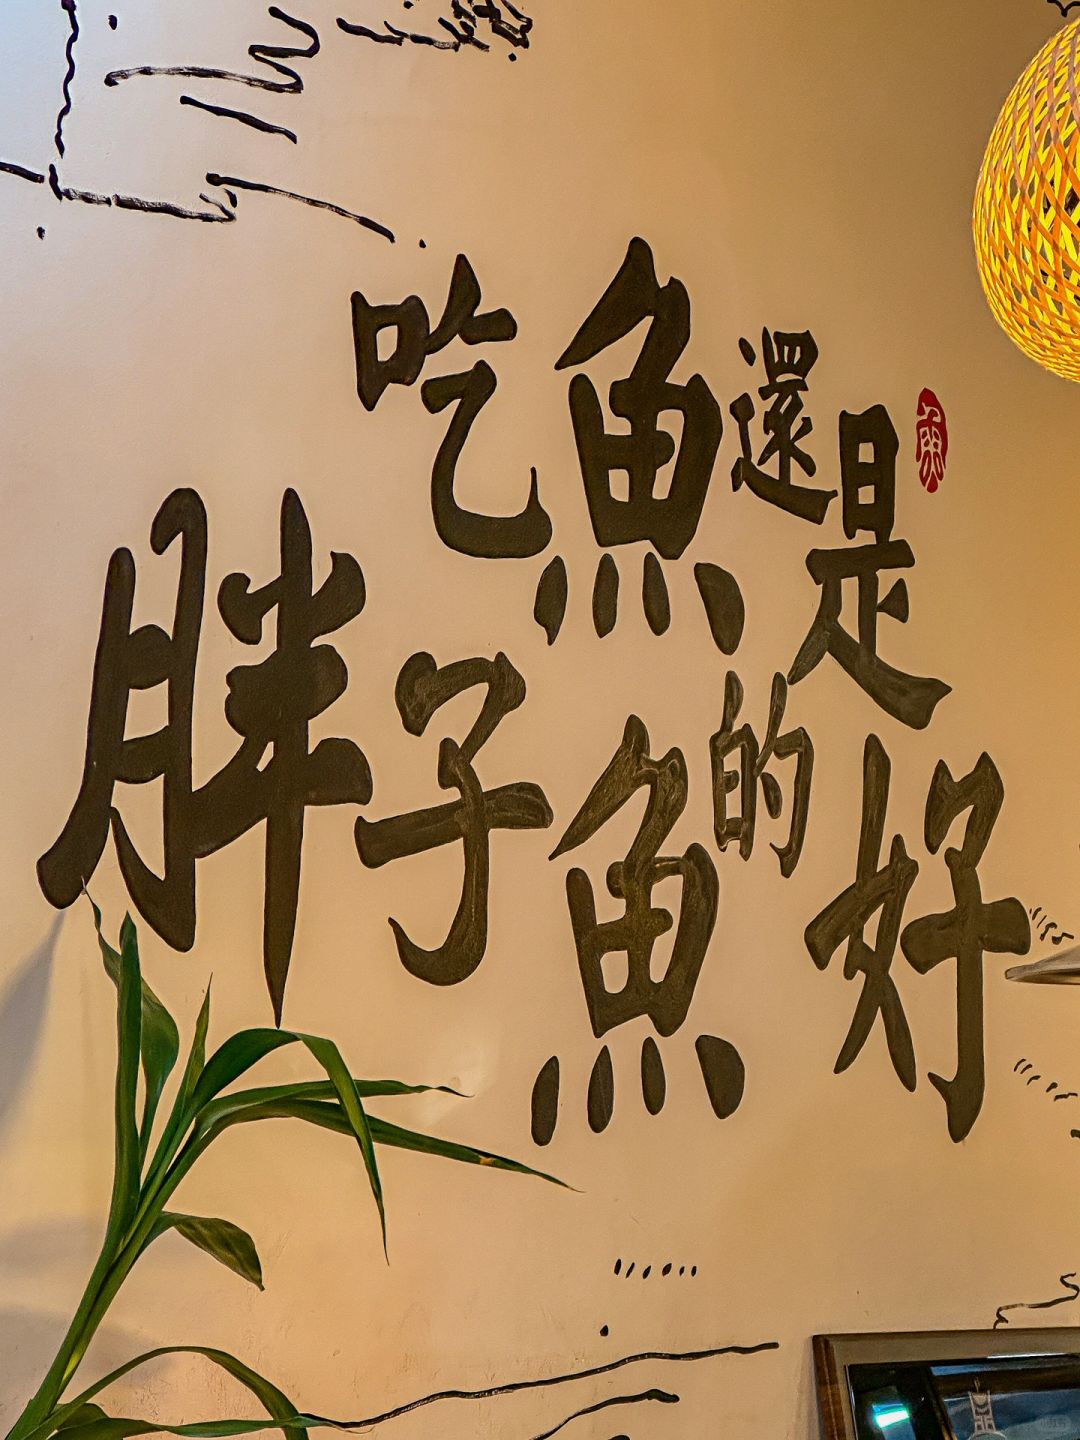 吃魚還是
胖子魚的好